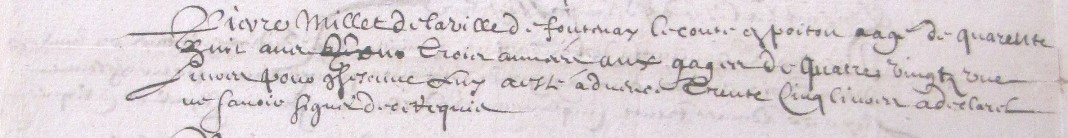 Pierre Millet de la ville de fontenay le conte e poitou aagé de quarente
huit ans trois annees aux gages de quatre vingtz une
livres pour chacune luy a esté advence trente cinq livres a declaré
ne savoir signer de ce requis